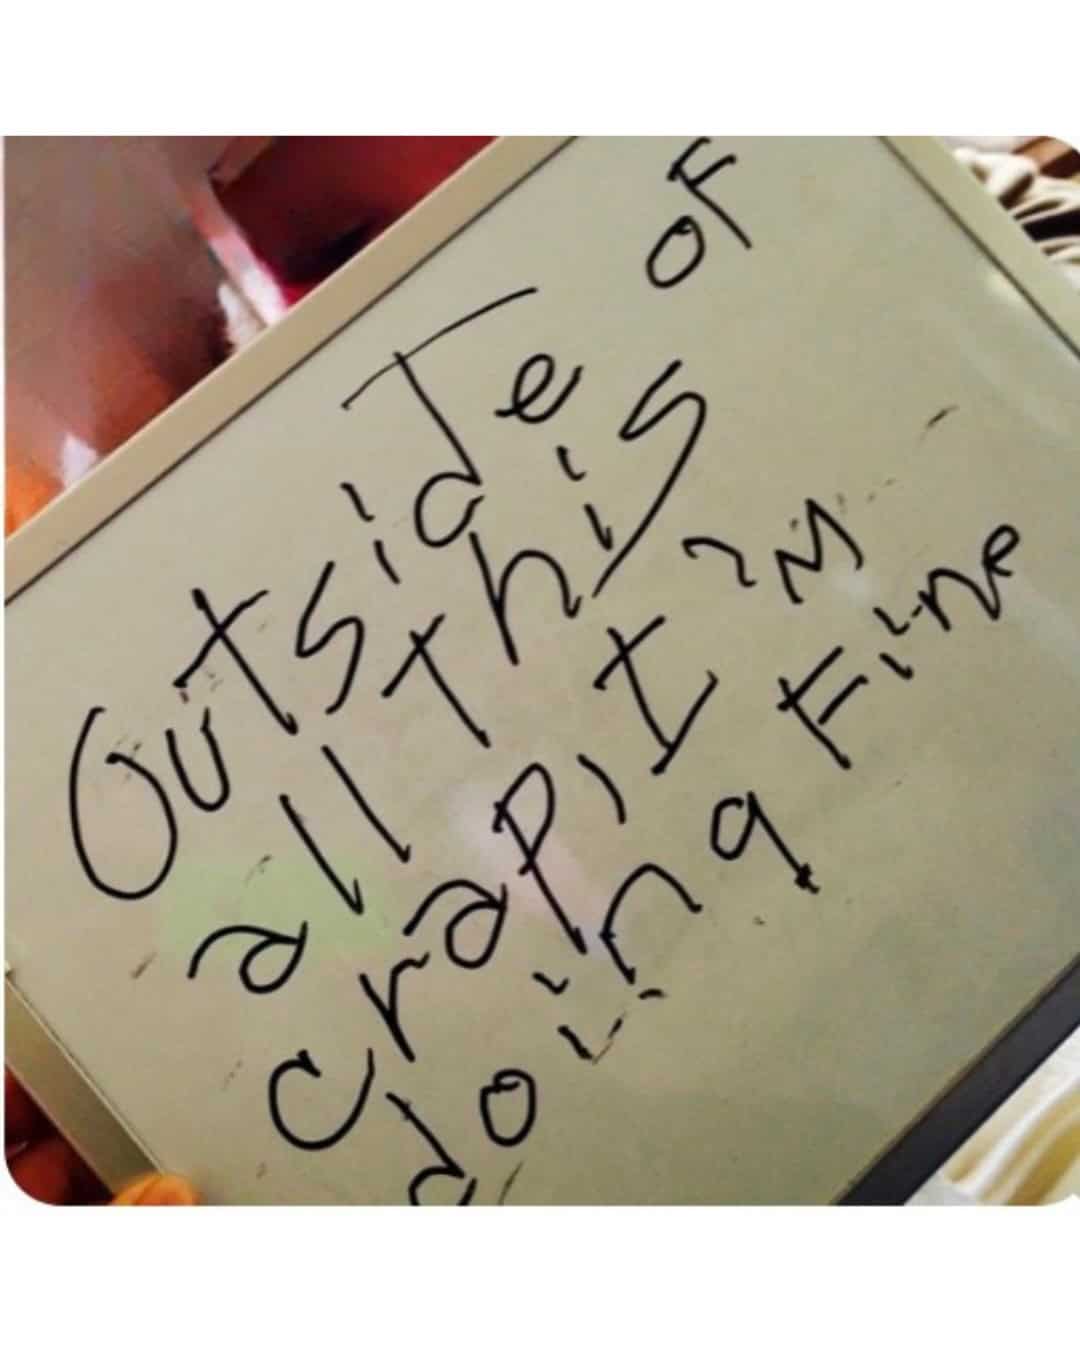 Outside of
all this
crap, I'm
doing Fine